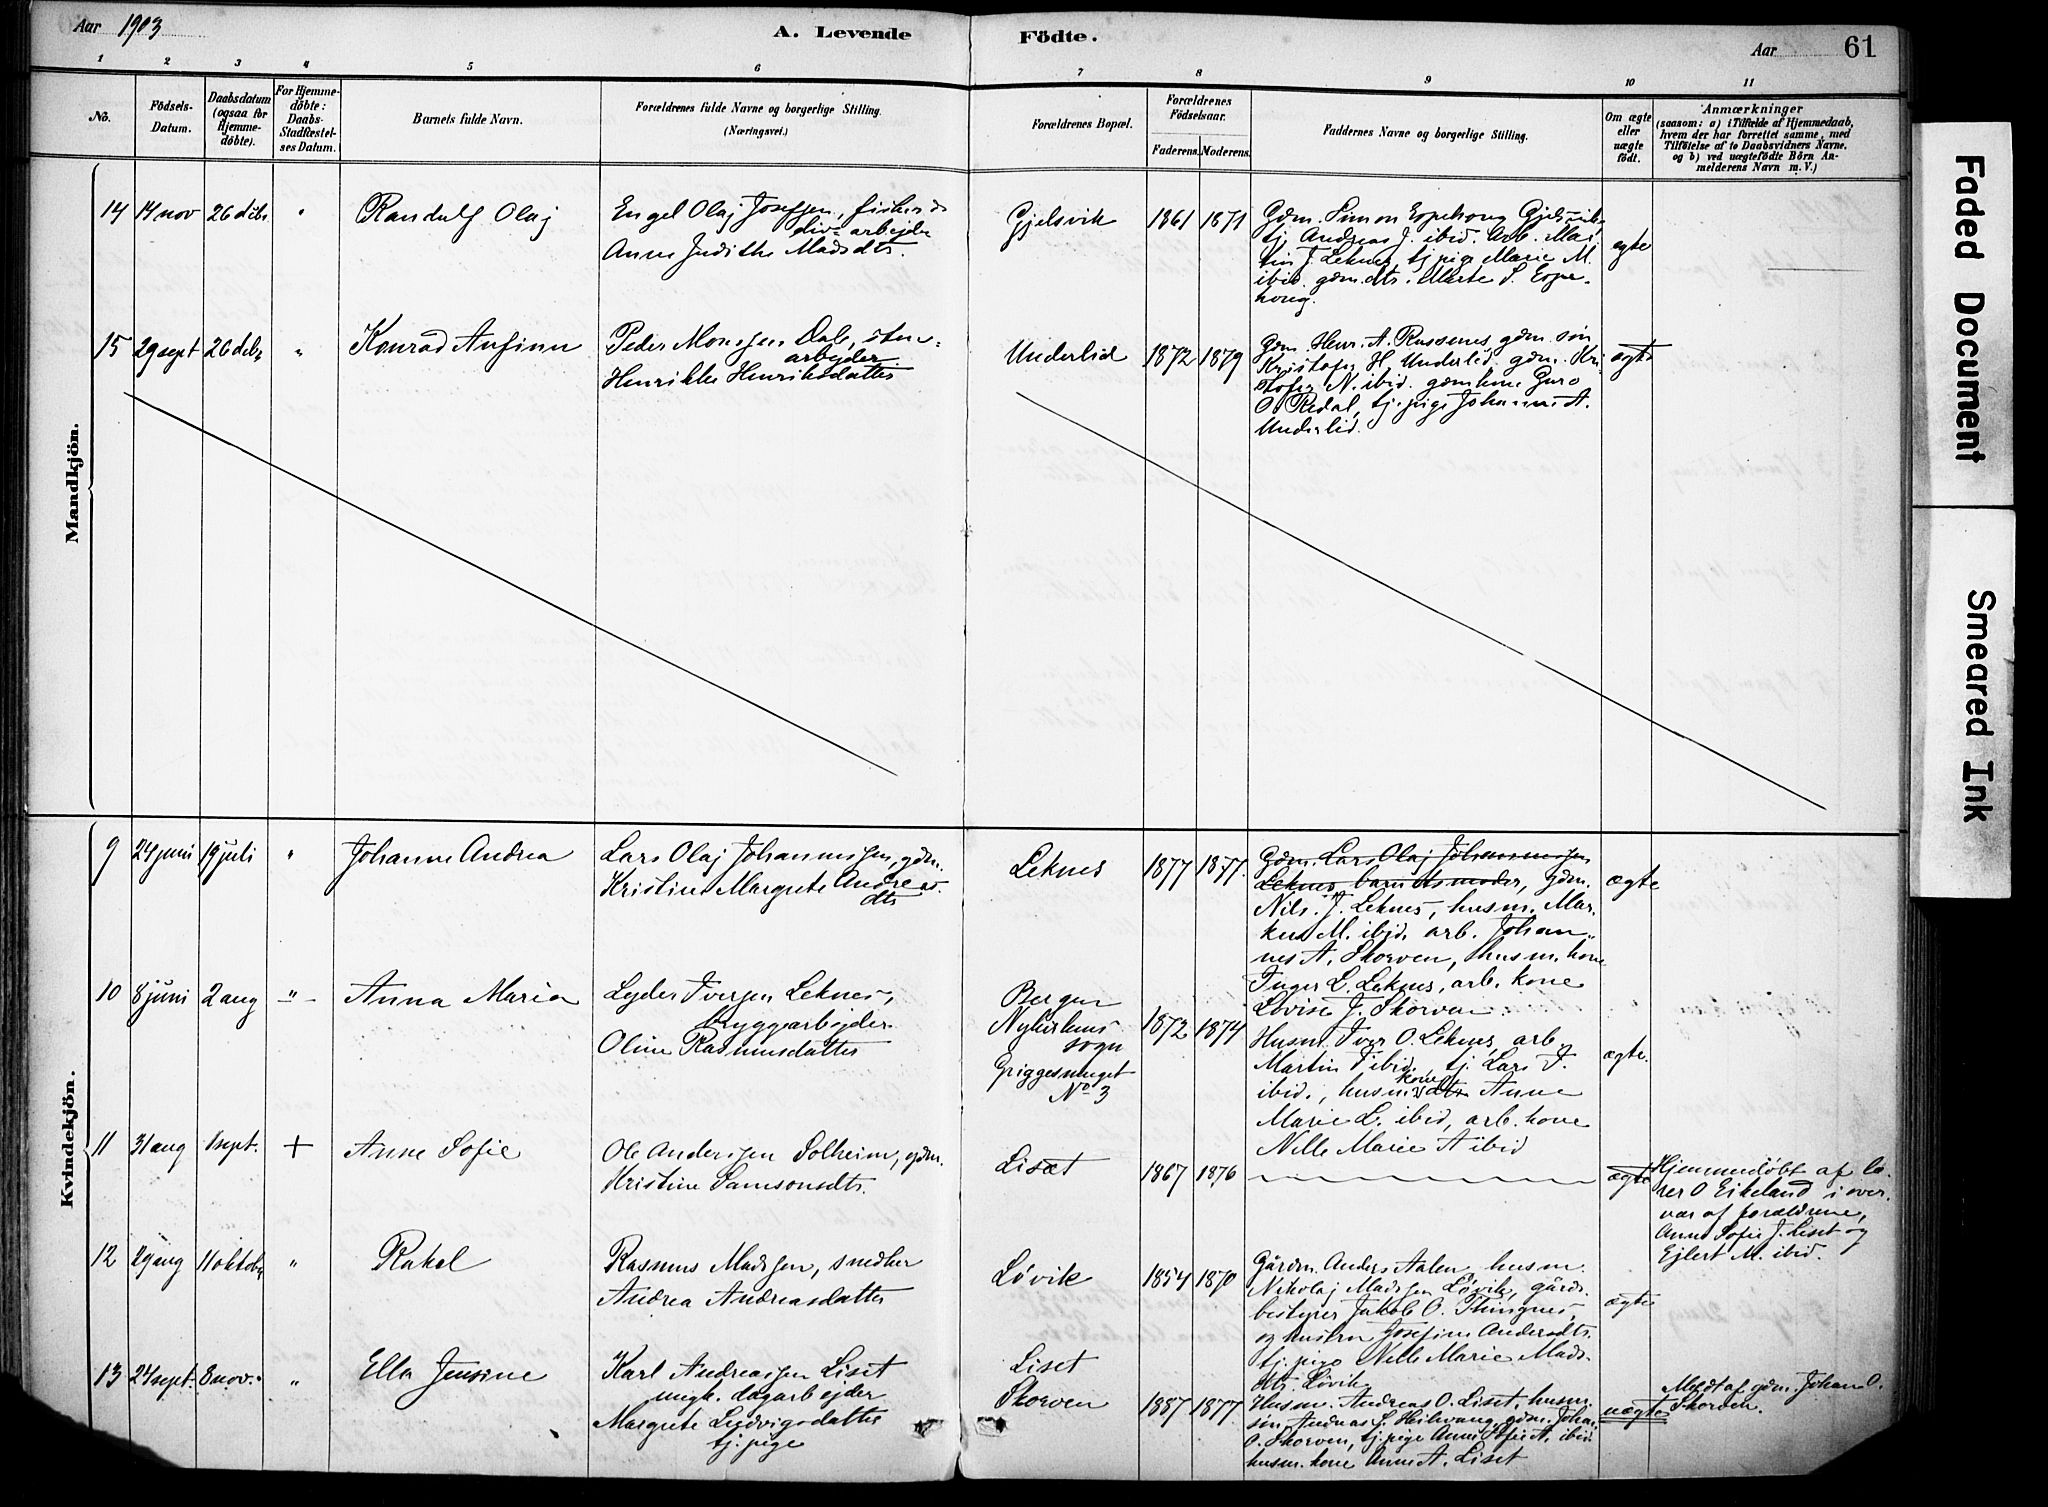 Aar 1903
A. Levende Födte.
Aar 61
1 2 3 4 5 6 7 8 9 10 11
No.
Födsels-
Datum.
Daabsdatum
(ogsaa for
Hjemme-
döbte).
For Hjemme-
döbte:
Daabs-
Stadfæstel-
ses Datum.
Barnets fulde Navn.
Forældrenes fulde Navne og borgerlige Stilling.
(Næringsvei.)
Forældrenes Bopæl.
Forældrenes
Födselsaar.
Faderens. Moderens.
Faddernes Navne og borgerlige Stilling.
Om ægte
eller
uægte
födt.
Anmærkninger
(saasom: a) i Tilfælde af Hjemmedaab,
hvem der har forrettet samme, med
Tilföielse af to Daabsvidners Navne,
og b) ved uægtefödte Börn An-
melderens Navn m. V.)
Mandkjön.
14 14 nov 26 dcbr " Randulf Olaj
Engel Olaj Josefsen, fisker &
div. arbejder
Anne Judithe Madsdtr.
Gjelsvik 1861 1871
Gdm. Simon Espehoug Gjelsvik,
tj. Andreas J. ibid. Arb. Mar
tin J. Leknes, tj. pige Marie M.
ibid. gdm. dtr. Marte S. Espe-
houg.
ægte
15 29 sept 26 dcbr " Konrad Anfinn
Peder Monssen Dale, sten-
arbejder
Henrikke Henriksdatter
Underlid 1872 1879
Gdm. Henr. A. Russenes, gdm. søn
Kristofer H. Underlid gdm. Kri
stofer N. ibid. gdm kone Guro
O. Redal, tj. pige Johanne A.
Underlid.
ægte
Kvindekjön.
9 24 juni 19 juli " Johanne Andrea
Lars Olaj Johannessen, gdm.
Kristine Margrete Andreas
dtr
Leknes 1877 1877.
Gdm. Lars Olaj Johannessen
Leknes, barnets moder, gdm.
Nils J. Leknes, husm. Mar-
kus M. ibid. arb. Johan-
nes A. Skorven, husm. kone
Inger L. Leknes, arb. kone
Lovise J. Skorven.
ægte
10 8 juni 2 aug - " - Anna Maria
Lyder Iversen Leknes,
bryggearbejder.
Oline Rasmusdatter
Bergen
Nykirkens
sogn
Griggesmuget
No 3
1872 1874
Husm. Iver O. Leknes, arb.
Martin I ibid. tj. Lars I.
ibid., husm. kone dtr. Anne
Marie L. ibid, arb. kone
Nille Marie A ibid
ægte.
11 31 aug 1 sept. + Anne Sofie
Ole Anderssen Solheim, gdm.
Kristine Samsonsdtr.
Liset 1867 1876
ægte
Hjemmedøbt af læ-
rer O Eikeland i over-
vær af forældrene,
Anne Sofie J. Liset og
Ejlert M. ibid.
12 29 aug 11 oktobr " Rakel
Rasmus Madssen, snedker
Andrea Andreasdatter
Løvik 1854 1870
Gårdm. Anders Aalen, husm.
Nikolaj Madssen Løvik, gårds-
bestyrer Jakob O. Thingnes,
og hustru Josefine Andersdtr.
tj. pige Nille Marie Mads-
dtr. Løvik
ægte
13 24 sept. 8 nov. " Ella Jensine
Karl Andreassen Liset
ungk. dagarbejder
Margrete Ludvigsdatter
tj. pige
Liset
Skorven
1887 1877
Husm. Andreas O. Liset, husm.
søn Andreas J. Heilevang, gdm. Johan
O. Skorven, tj. pige Anne Sofie A. ibid.
husm. kone Anne A. Liset
uægte
Meldt af gdm. Johan O.
Skorven.
Faded Document
Smeared Ink